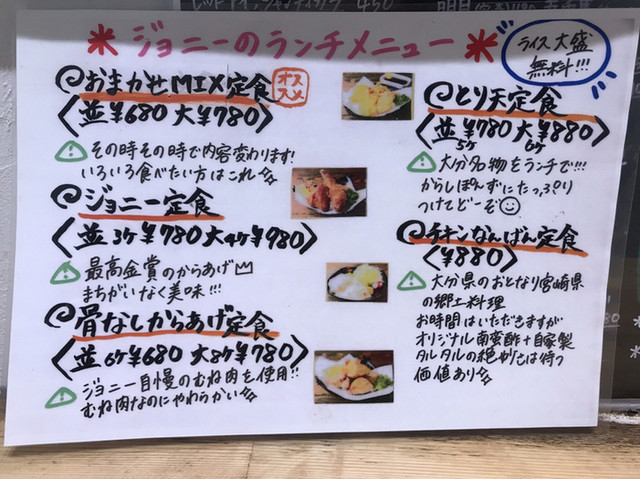 450
ジョニーのランチメニュー
ライス大盛
無料!!!
おまかせMIX定食
オススメ
〈並¥680 大¥780〉
その時その時で内容変わります!
いろいろ食べたい方はこれ
ジョニー定食
〈並3ケ¥780 大4ケ¥980〉
最高金賞のからあげ
まちがいなく美味!!!
骨なしからあげ定食
〈並6ケ¥680 大8ケ¥780〉
ジョニー自慢のむね肉を使用!!
むね肉なのにやわらかい
とり天定食
〈並¥780 大¥880〉
5ケ 6ケ
大分名物をランチで!!!
からしぽんずにたっぷり
つけてどーぞ
チキンなんばん定食
〈¥880〉
大分県のおとなり宮崎県
の郷土料理
お時間はいただきますが
オリジナル南蛮酢+自家製
タルタルの絶妙さは待つ
価値あり